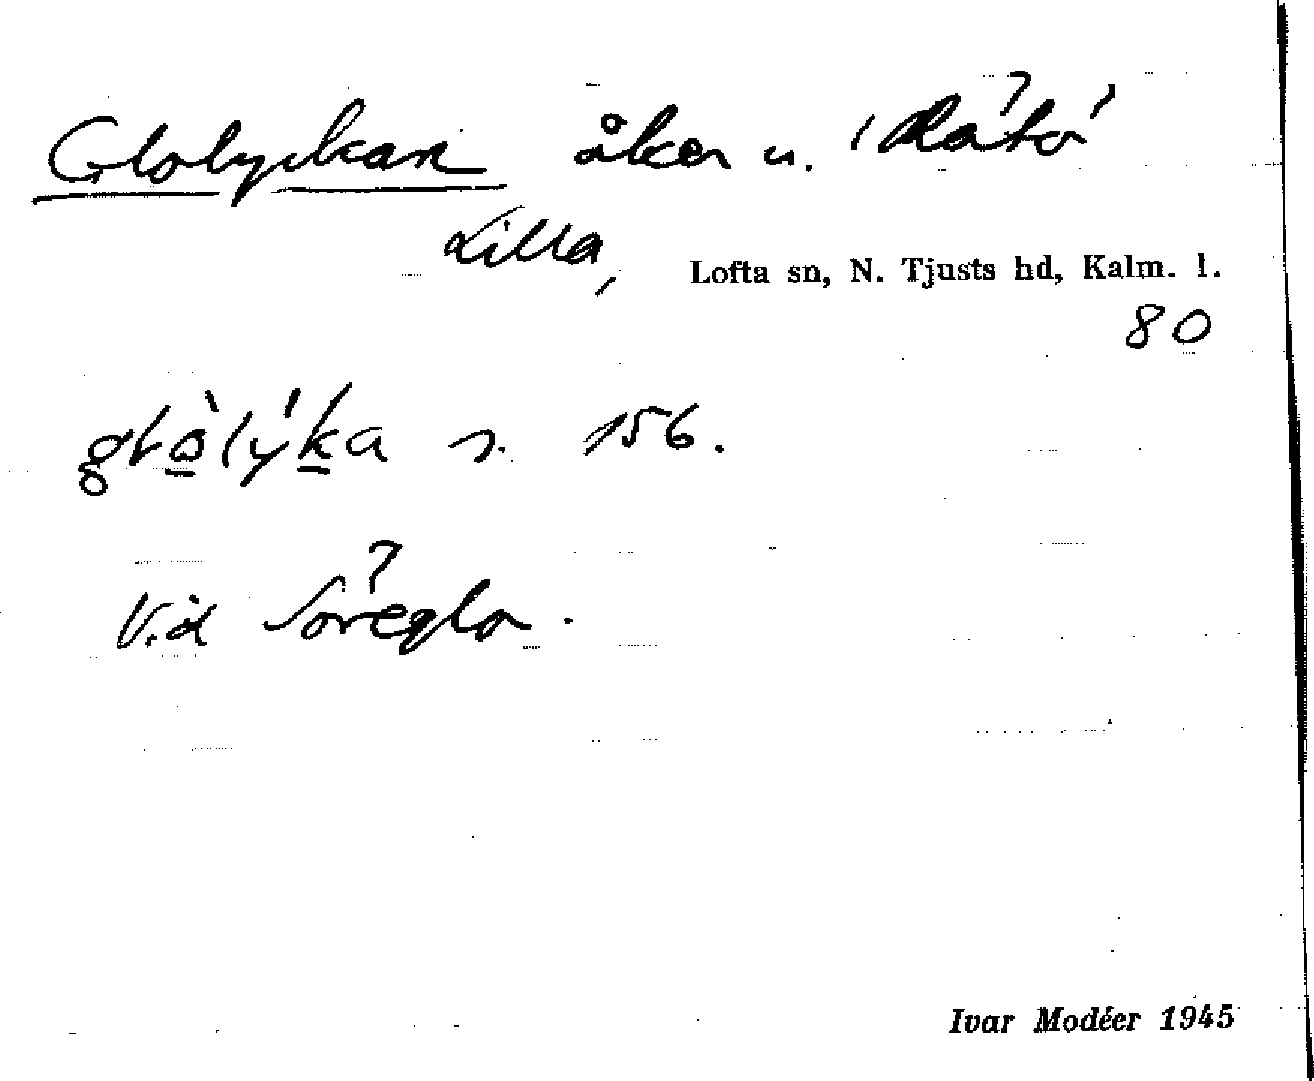 Glolyckan åker u. Råtö
Lilla,
Lofta sn, N. Tjusts hd, Kalm. l.
80
s. 156.
Vid
Ivar Modéer 1945